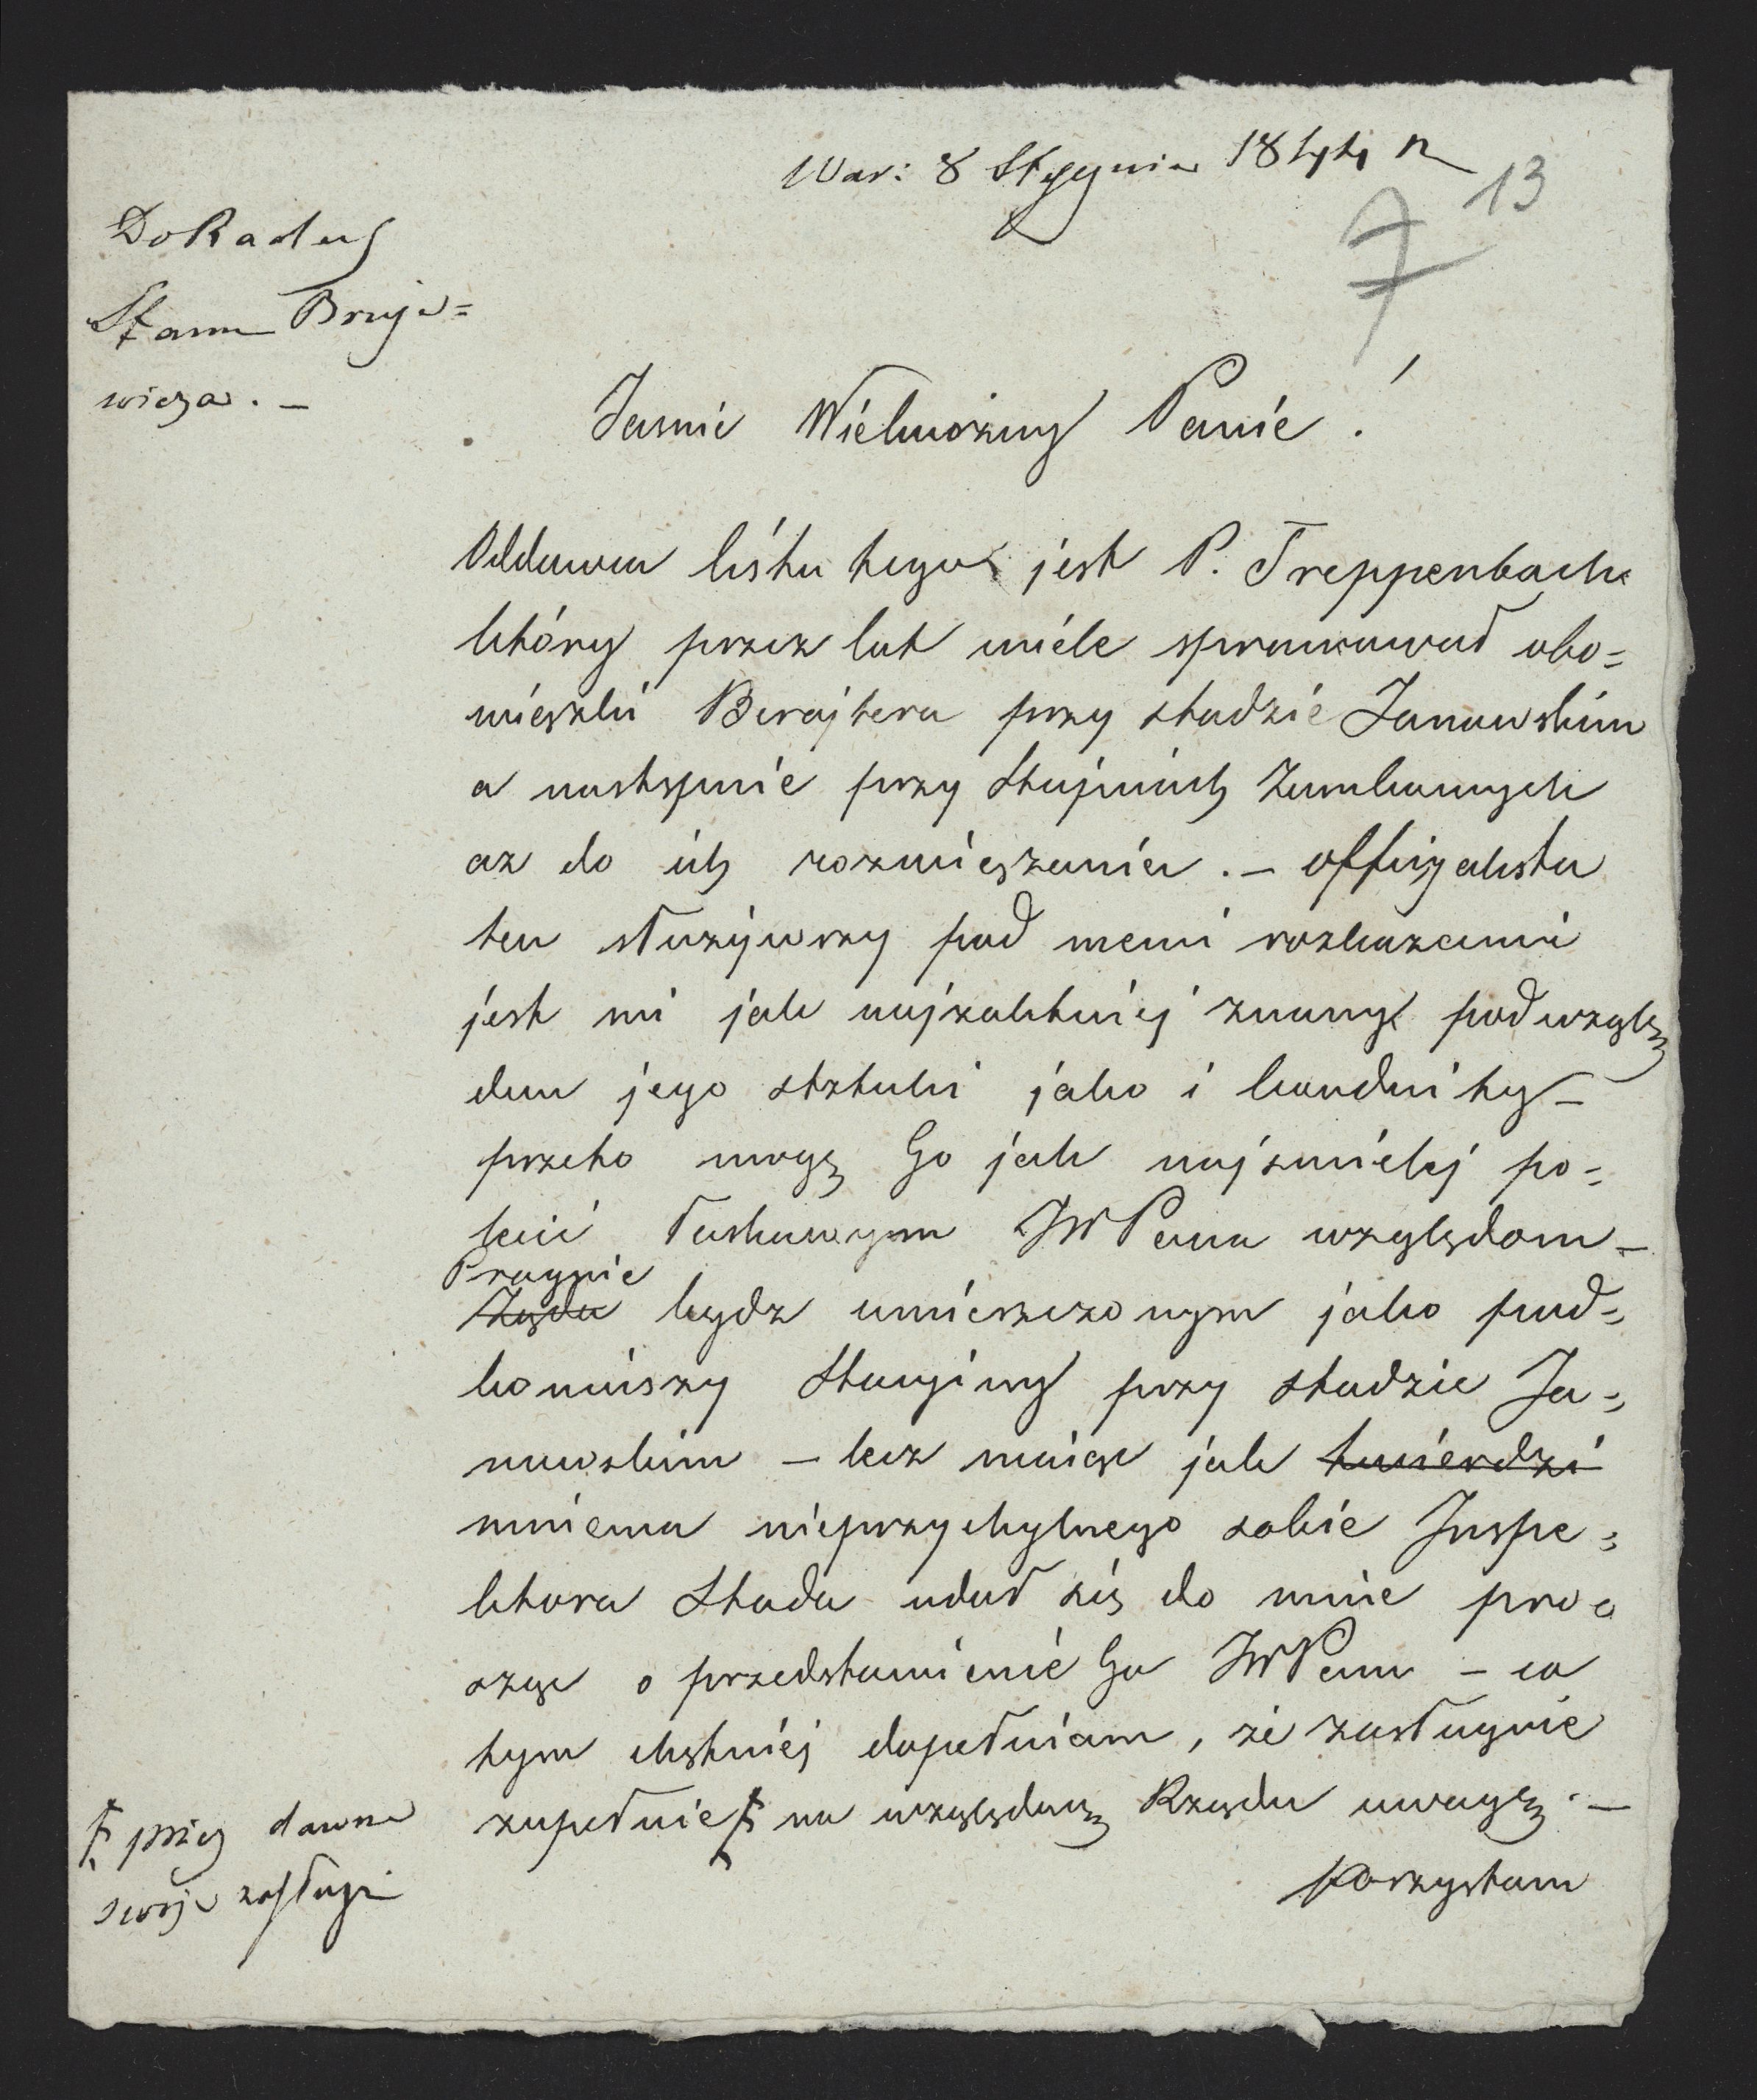 War: 8 Stycznia 1844 r
13
7
Do Radcy
Stanu Bruje=
wicza. —
Jasnie Wielmożny Panie!
Oddawca listu tego jest P. Treppenbach
który przez lat wiele sprawował obo=
wiązki Berajtera przy stadzie Janowskim
a następnie przy Stajniach Zamkowych
az do ich rozwiązania. — Offizialista
ten służywszy pod memi rozkazami
jest mi jak najzaletniej znany pod wzglę
dem jego sztuki jako i konduity —
przeto mogę Go jak najsmielej po=
lecić łaskawym JWPana względom —
Pragnie
Żąda bydz umieszczonym jako pod=
koniuszy Stacyiny przy stadzie Ja=
nowskim — lecz maiąc jak twierdzi
mniema nieprzychylnego sobie Inspe=
ktora Stada udał się do mnie pro=
sząc o przedstawienié Go JWPanu — co
tym chętniéj dopełniam, że zasługuie
zupełnie na względną Rządu uwagę. —
przez dawne
swoje zasługi
Korzystam